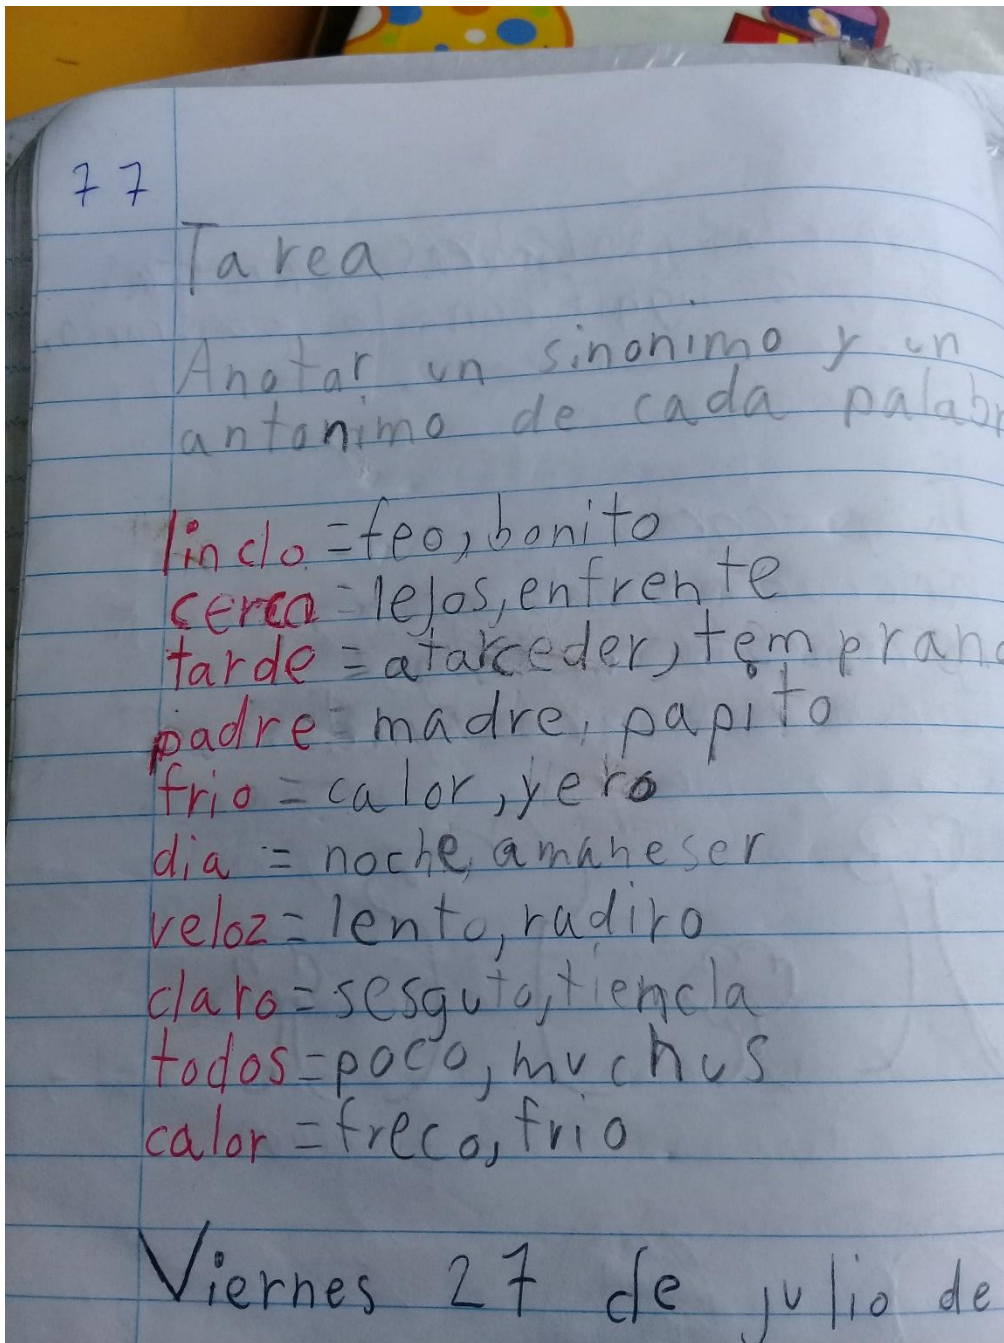 77
Tarea
Anotar un sinonimo y un
antonimo de cada palabr
lindo = feo, bonito
cerca = lejos, enfrente
tarde = atarceder, temprano
padre = madre, papito
frio = calor, yero
dia = noche, amaneser
veloz = lento, radiro
claro = sesguto, tiencla
todos = poco, muchus
calor = freco, frio
Viernes 27 de julio de